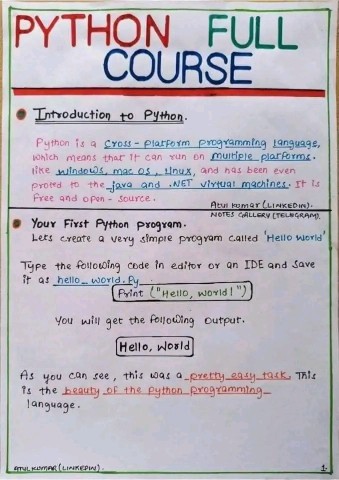 PYTHON FULL
COURSE
Introduction to Python.
Python is a cross-platform programming language,
which means that it can run on multiple platforms.
like windows, mac os, Linux, and has been even
proted to the java and .NET virtual machines. It is
Free and open-source.
ATUL KUMAR (LINKEDIN).
NOTES GALLERY (TELEGRAM)
Your First Python program.
Lets create a very simple program called 'Hello World'
Type the following code in editor or an IDE and save
it as hello_world.Py
Print ("Hello, world!")
You will get the following output.
Hello, World
As you can see, this was a pretty easy task. This
is the beauty of the python programming
language.
ATUL KUMAR (LINKEDIN).
1.